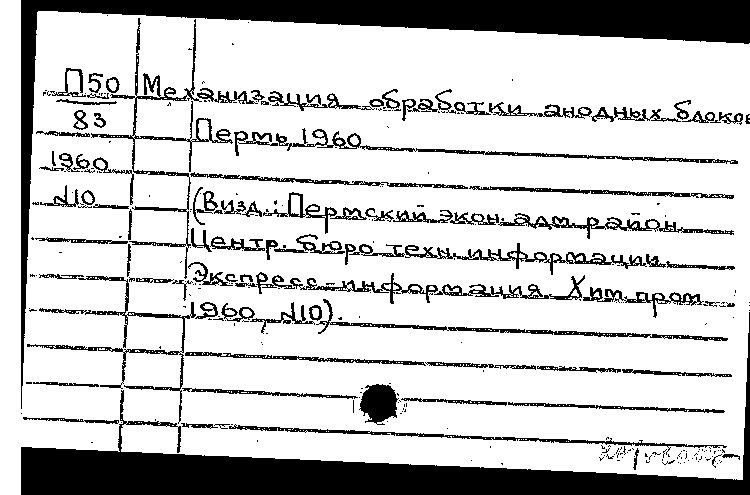 П50 Механизация обработки анодных блоков
83 Пермь, 1960
1960
N10 (В изд.: Пермский экон. адм. район.
Центр. бюро техн. информации.
Экспресс-информация. Хим. пром.
1960, N10).